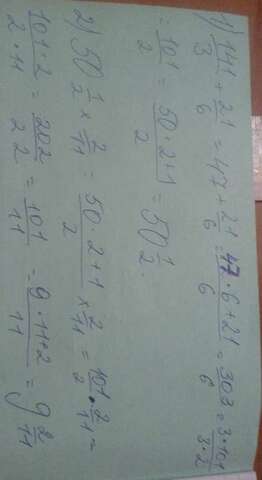 1) 141/3 + 21/6 = 47 + 21/6 = 47·6+21/6 = 303/6 = 3·101/3·2
= 101/2 = 50·2+1/2 = 50 1/2.
2) 50 1/2 × 2/11 = 50·2+1/2 × 2/11 = 101/2 · 2/11 =
101·2/2·11 = 202/22 = 101/11 = 9·11+2/11 = 9 2/11